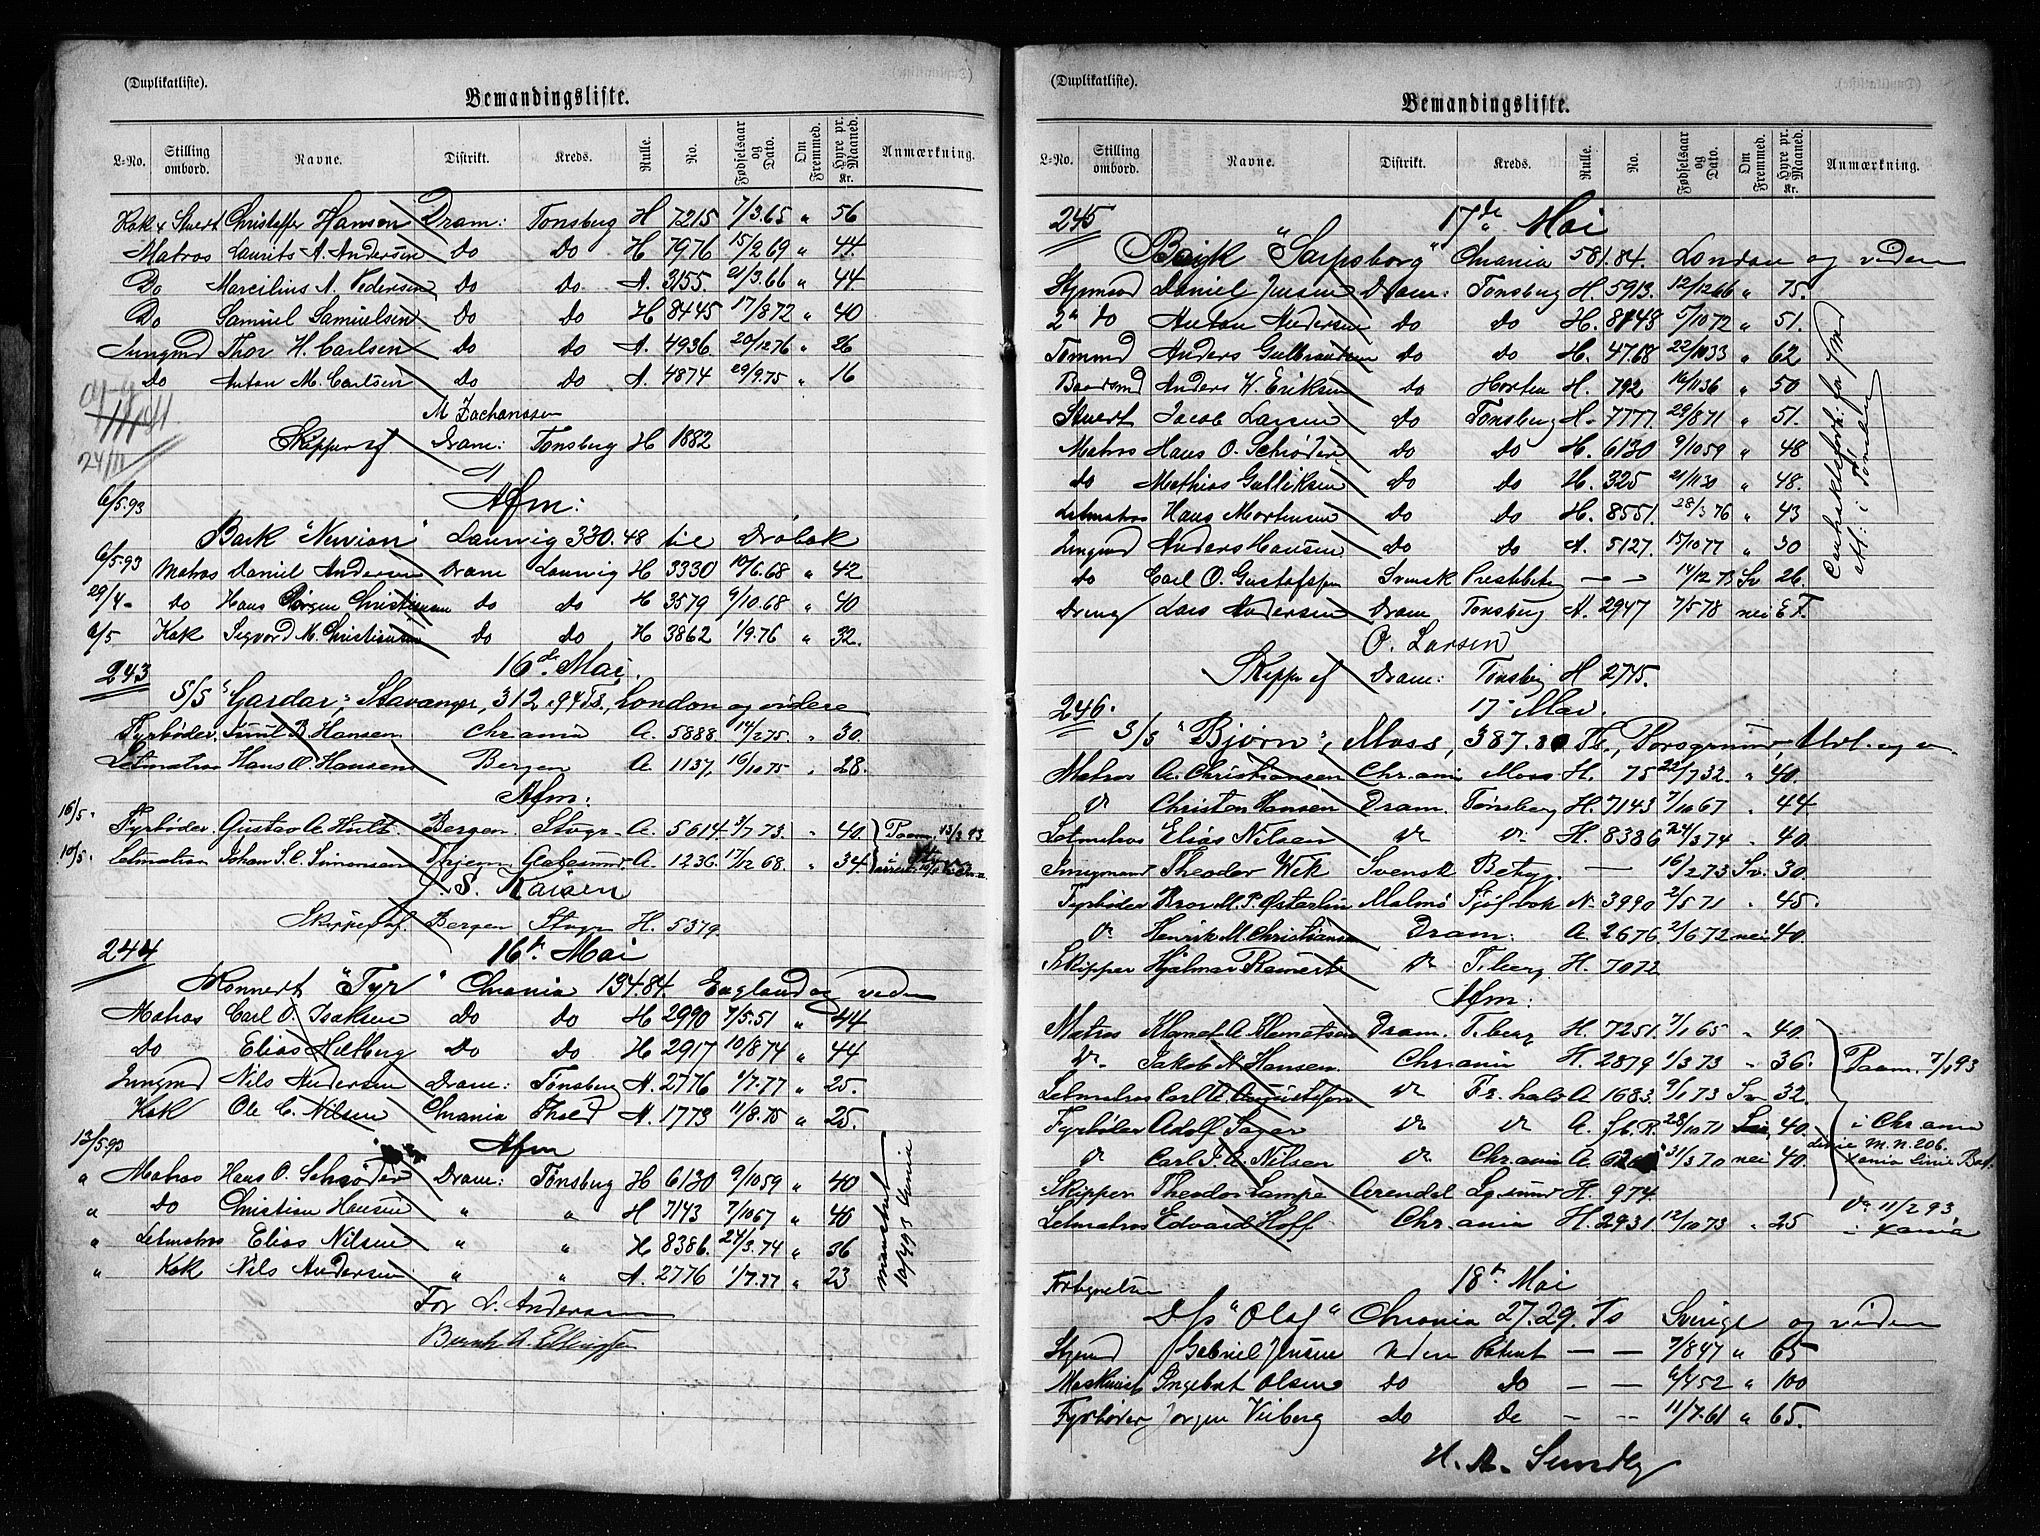 (Duplikatliste).
Bemandingsliste.
L-No. Stilling ombord. Navne. Distrikt. Kreds. Rulle. No. Fødselsaar og Dato. Om Fremmed. Hyre pr. Maaned. Kr. Anmærkning.
Kok & Stuert Christoffer Hansen Dram: Tønsberg H 7215 7/3.65 " 56
Matros Laurits A. Andersen Do do H 7976 15/2 69 " 44.
Do Marcilius A. Pedersen do do A. 3155. 21/3.66 " 44
Do Samuel Samuelsen do do H 8445 17/8 72 " 40
Jungmd Thor H. Carlsen do do A. 4936 20/12 76 " 26
do Anton M. Carlsen do do A. 4874 29/9.75 " 16
M Zachariassen
24/11
Skipper af. Dram: Tønsberg H 1882
6/5.93 Afm:
Bark "Nervion" Laurvig 330.48 til Drøbak
6/5.93 Matros Daniel Andersen Dram Laurvig H 3330 10/6.68 " 42
29/4- do Hans Jørgen Christiansen do do H 3579 9/10.68 " 40
6/5 Kok Sigvard M. Christiansen do do H 3862 1/9.76 " 32.
243 16de Mai.
S/S "Gardar", Stavanger, 312.94 Ts., London og videre
Fyrbøder. Hansen. Chr.ania A. 5888. 14/2 75. " 30.
Letmatros Hans O. Hansen Bergen A 1137, 16/10 75 " 28.
Afm:
16/5. Fyrbøder. Gustav A. Hult Bergen Stvgr. A. 5614 3/7 73. " 40. Paam. 13/2 93
10/5. Letmatros Johan S. C. Simonsen Thjem Aalesund A. 1236. 17/12 68. " 34.
S. Kaisen
Skipper af. Bergen Stvgr H. 5379.
244 16de Mai
Konnert "Tyr" Chrania 134.84. England og viden
Matros Carl O. Isaksen do do H 2990 7/5.51 " 44
do Elias Helberg do do H 2917 10/8 74 " 44
Jungmd Nils Andersen Dram: Tønsberg A. 2776 1/7.77 " 25.
Kok Ole C. Nilsen Chrania A. 1773 11/8.75 " 25.
13/5.93 Afm
" Matros Hans O. Schrøder Dram: Tønsberg H 6130 9/10 59 " 40
" do Christian Hansen " " H 7143 7/10 67 " 40
" Letmatros Elias Nilsen " " H 8386. 24/3.74 " 36
" Kok Nils Andersen " " A. 2776 1/7.77 " 23
mønstret 10/4 93
For L. Andersen
Bernh A. Ellingsen
(Duplikatliste).
Bemandingsliste.
L-No. Stilling ombord. Navne. Distrikt. Kreds. Rulle. No. Fødselsaar og Dato. Om Fremmed. Hyre pr. Maaned. Kr. Anmærkning.
245 17de Mai
Bark "Sarpsborg" Chrania 581.84. London og viden
Styrmand Daniel Jensen Dram: Tønsberg H. 5913. 12/12 66 " 75.
2n do Anton Andersen do do H. 8148 5/10 72 " 51.
Tømmd Anders Gulbrandsen do do H. 4768 33 " 62
Baadsmd Anders W. Eriksen do Horten H. 792 16/11 36 " 50
Stuert Jacob Larsen do Tønsberg H. 7777. 29/8 71 " 51.
Matros Hans O. Schrøder do do H. 6130 9/10 59 " 48
do Mathias Gulliksen do do H. 325 21/11 30 " 48.
Letmatros Hans Mortensen do do H. 8551. 28/3 76 " 43
Jungmd Anders Hansen do do A. 5127. 15/10 77 " 30
do Carl O. Gustafsson Svensk Prestebetyg — — 14/12 73 Sv 26.
Dreng Lars Andersen Dram Tønsberg A. 2947 7/5 78 nei E F.
O. Larsen
Skipper af Dram: Tønsberg H 2745.
246. 17 Mai.
S/S "Bjørn", Moss, 387.80 Ts., Porsgrund Udl. og v.
Matros A. Christiansen Chr.ania Moss H. 75 22/7 32. " 40.
do Christian Hansen Dram. Tønsberg H. 7143 7/10 67 " 44.
Letmatros Elias Nilsen do do H. 8386 24/3 74 " 40.
Jungmand Theodor Wik Svensk Betyg. — 16/2 73 Sv. 30.
Fyrbøder M. P. Østerlin Malmö N. 3990 2/5 71 " 45.
do Henrik M. Christiansen Dram. A. 2676 2/6 72 nei 40.
Skipper Hjalmar Reinert do T.berg. H. 7072
Afm:
Matros Klemet A. Klemetsen Dram. T.berg H. 7251. 7/1 65 " 40.
do Jakob A. Hansen. Chr.ania H. 2879 1/3 73 " 36. Paam. 7/1 93
Letmatros Carl A. Augustsson do Fr. hald A 1683. 9/1 73 Sv 32.
Fyrbøder Adolf Sager do do A. 28/10 71 40. i Chr.ania
do Carl J. A. Nilsen do Chr.ania A. 31/3 70 nei 40. M. N. 206.
Skipper Theodor Lampe Arendal H. 974 do 11/2 93
Letmatros Edvard Hoff Chr.ania H. 2931. 12/10 73 " 25 i Xania
18de Mai
D/s "Olaf" Chrania 27.29. Ts Sverige og viden
Styrmd Gabriel Jensen Uden Patent — — 7/8 47 " 65
Maskinist Ingebret Olsen do do — — 6/4 52 " 100
Fyrbøder Jørgen Viiberg do do — — 11/7.61 " 65.
H. A. Sundby